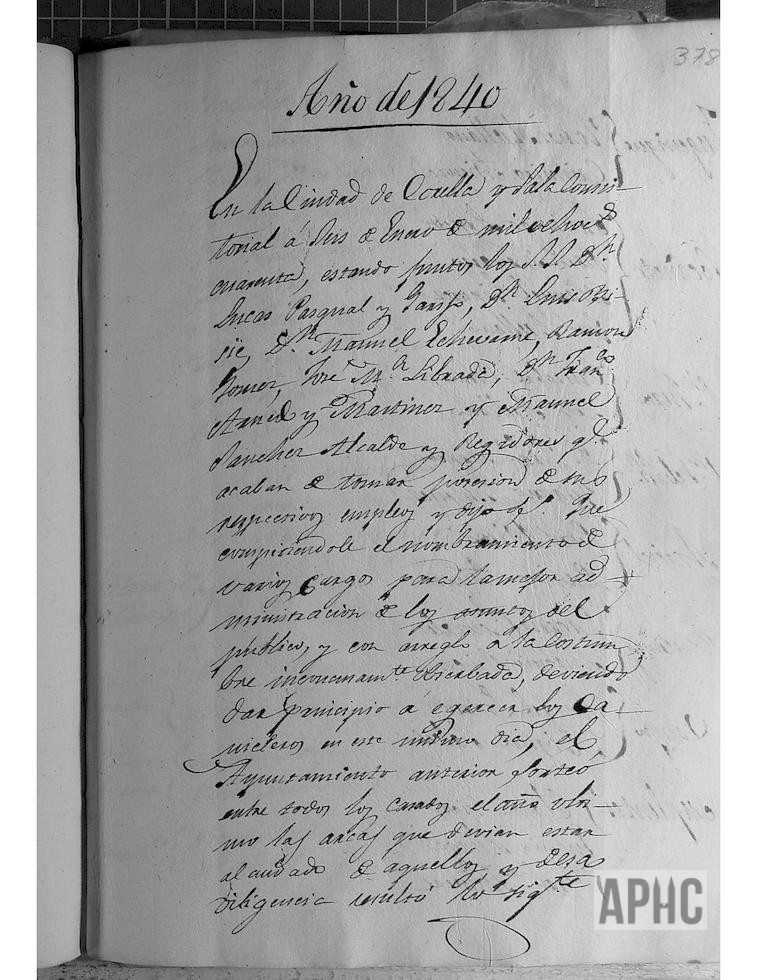 378
Año de 1840
En la Ciudad de Corella y Sala Consis-
torial á seis de Enero de mil ochocs
cuarenta, estando juntos los S.S. Dn
Lucas Pasqual y Dn Luis
Dn Manuel Echeverria, Ramon
José Ma Librada, Dn Franco
y Martinez y Manuel
Sanchez Alcalde y Regidores qe
acaban de tomar posesion de sus
respectivos empleos y Que
el nombramiento de
varios cargos para la mejor ad-
ministracion de los asuntos del
publico, y con arreglo a la costum
bre deviendo
dar principio a egercer los Ca
en este mismo dia, el
Ayuntamiento anterior sorteó
entre todos los casados el año ulti-
mo las arcas que devian estar
al cuidado de aquellos y de esa
diligencia resultó lo sigte
APHC